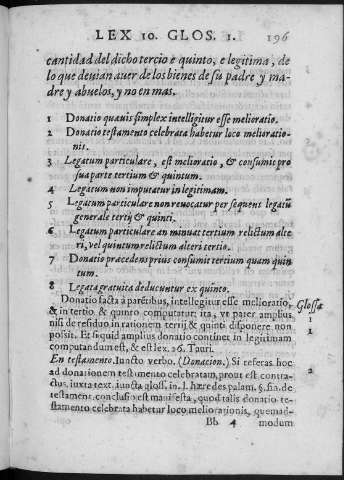 LEX 10. GLOS. 1. 196
cantidad del dicho tercio e quinto, e legitima, de
lo que deuian auer de los bienes de su padre y ma-
dre y abuelos, y no en mas.
1 Donatio quauis simplex intelligitur esse melioratio.
2 Donatio testamento celebrata habetur loco melioratio-
nis.
3 Legatum particulare, est melioratio, & consumit pro
sua parte tertium & quintum.
4 Legatum non imputatur in legitimam.
5 Legatum particulare non reuocatur per sequens legatū
generale tertij & quinti.
6 Legatum particulare an minuat tertium relictum alte
ri, vel quintum relictum alteri tertio.
7 Donatio præcedens prius consumit tertium quam quin
tum.
8 Legata gratuita deducuntur ex quinto.
Donatio facta à partibus, intellegitur esse melioratio, Glossa
& in tertio & quinto computatur: ita, vt pater amplius 1
nisi de residuo in rationem tertij & quinti disponere non 1
possit. Et si quid amplius donatio continet in legitimam
computandum est, & est lex. 26. Tauri.
En testamento. Iuncto verbo. (Donacion.) Si referas hoc
ad donationem testamento celebratam, prout est contra- 2
ctus, iuxta text. iuncta gloss. in. l. hæredes palam. §. fin. de
testament. conclusio est manifesta, quod talis donatio te-
stamento celebrata habetur loco meliorationis, quemad-
Bb 4 modum